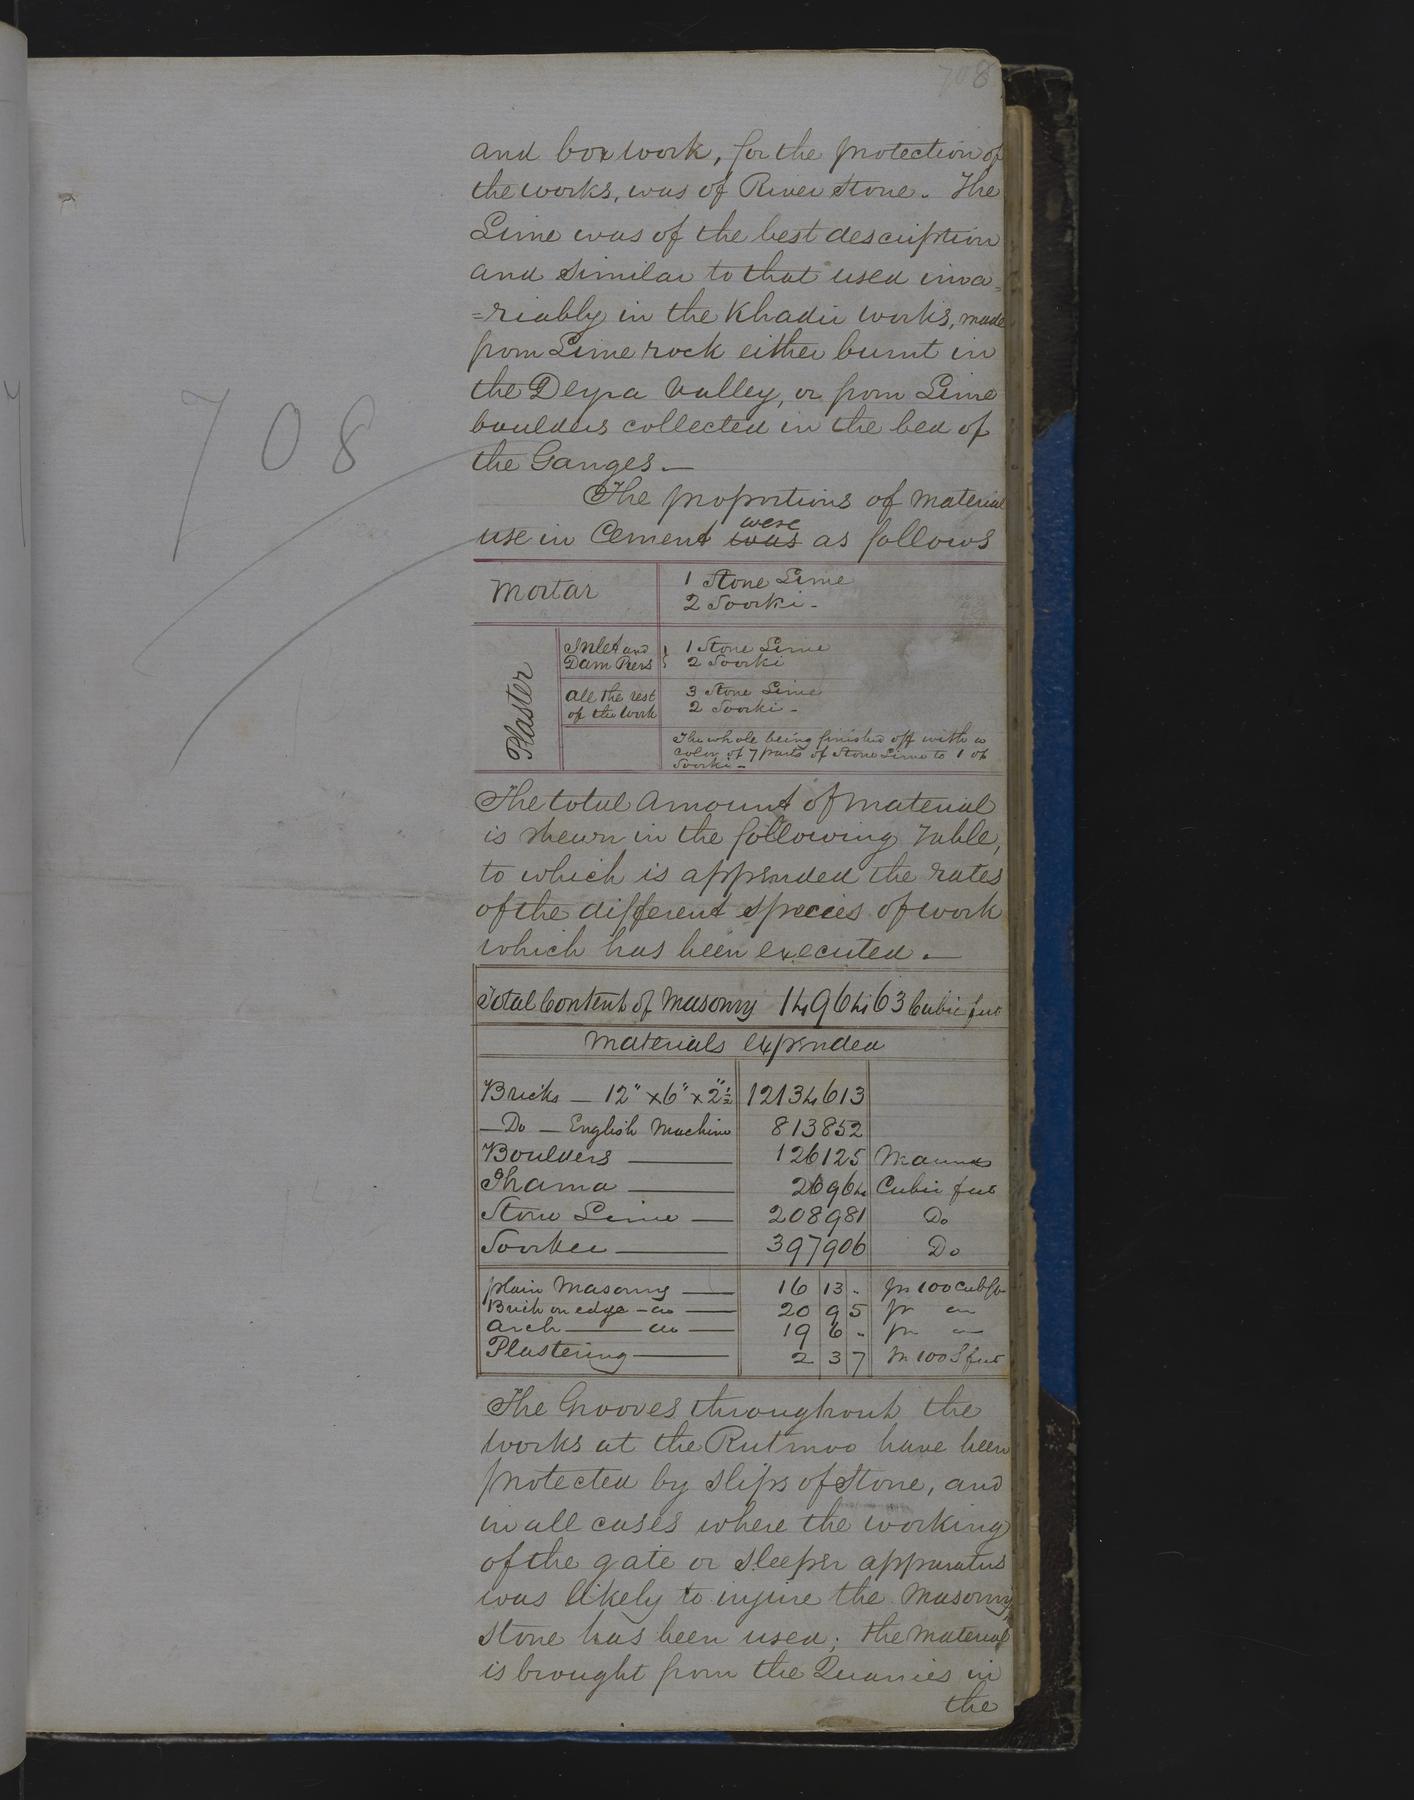 708
and box work, for the protection of
the works, was of River Stone. The
Lime was of the best description
and similar to that used inva=
=riably in the Khadir works, made
from Lime rock either burnt in
the Deyra Valley, or from Lime
boulders collected in the bed of
708
the Ganges.—
The proportions of material
were
use in Cement was as follows
Mortar
1 Stone Lime
2 Soorki -
Plaster
Inlet and
Dam Piers
1 Stone Lime
2 Soorki
All the rest
of the work
3 Stone Lime
2 Soorki -
The whole being finished off with a
color of 7 parts of Stone Lime to 1 of
Soorki -
The total amount of material
is shewn in the following Table,
to which is appended the rates
of the different species of work
which has been executed.—
Total Content of Masonry 1496463 Cubic feet
Materials expended
Bricks — 12" x 6" x 2"½ 12134613
— Do — English Machine 813852
Boulders — 126125 Maunds
Ghama — 26964 Cubic feet
Stone Lime — 208981 Do
Soorkee — 397906 Do
plain Masonry — 16 13 - pr 100 Cub ft
Brick on edge - do — 20 9 5 pr do
Arch — do — 19 6 - pr do
Plastering — 2 3 7 pr 100 S feet
The Grooves throughout the
works at the Rutmoo have been
protected by slips of Stone, and
in all cases where the working
of the gate or sleeper apparatus
was likely to injure the Masonry,
stone has been used; the material
is brought from the Quarries in
the